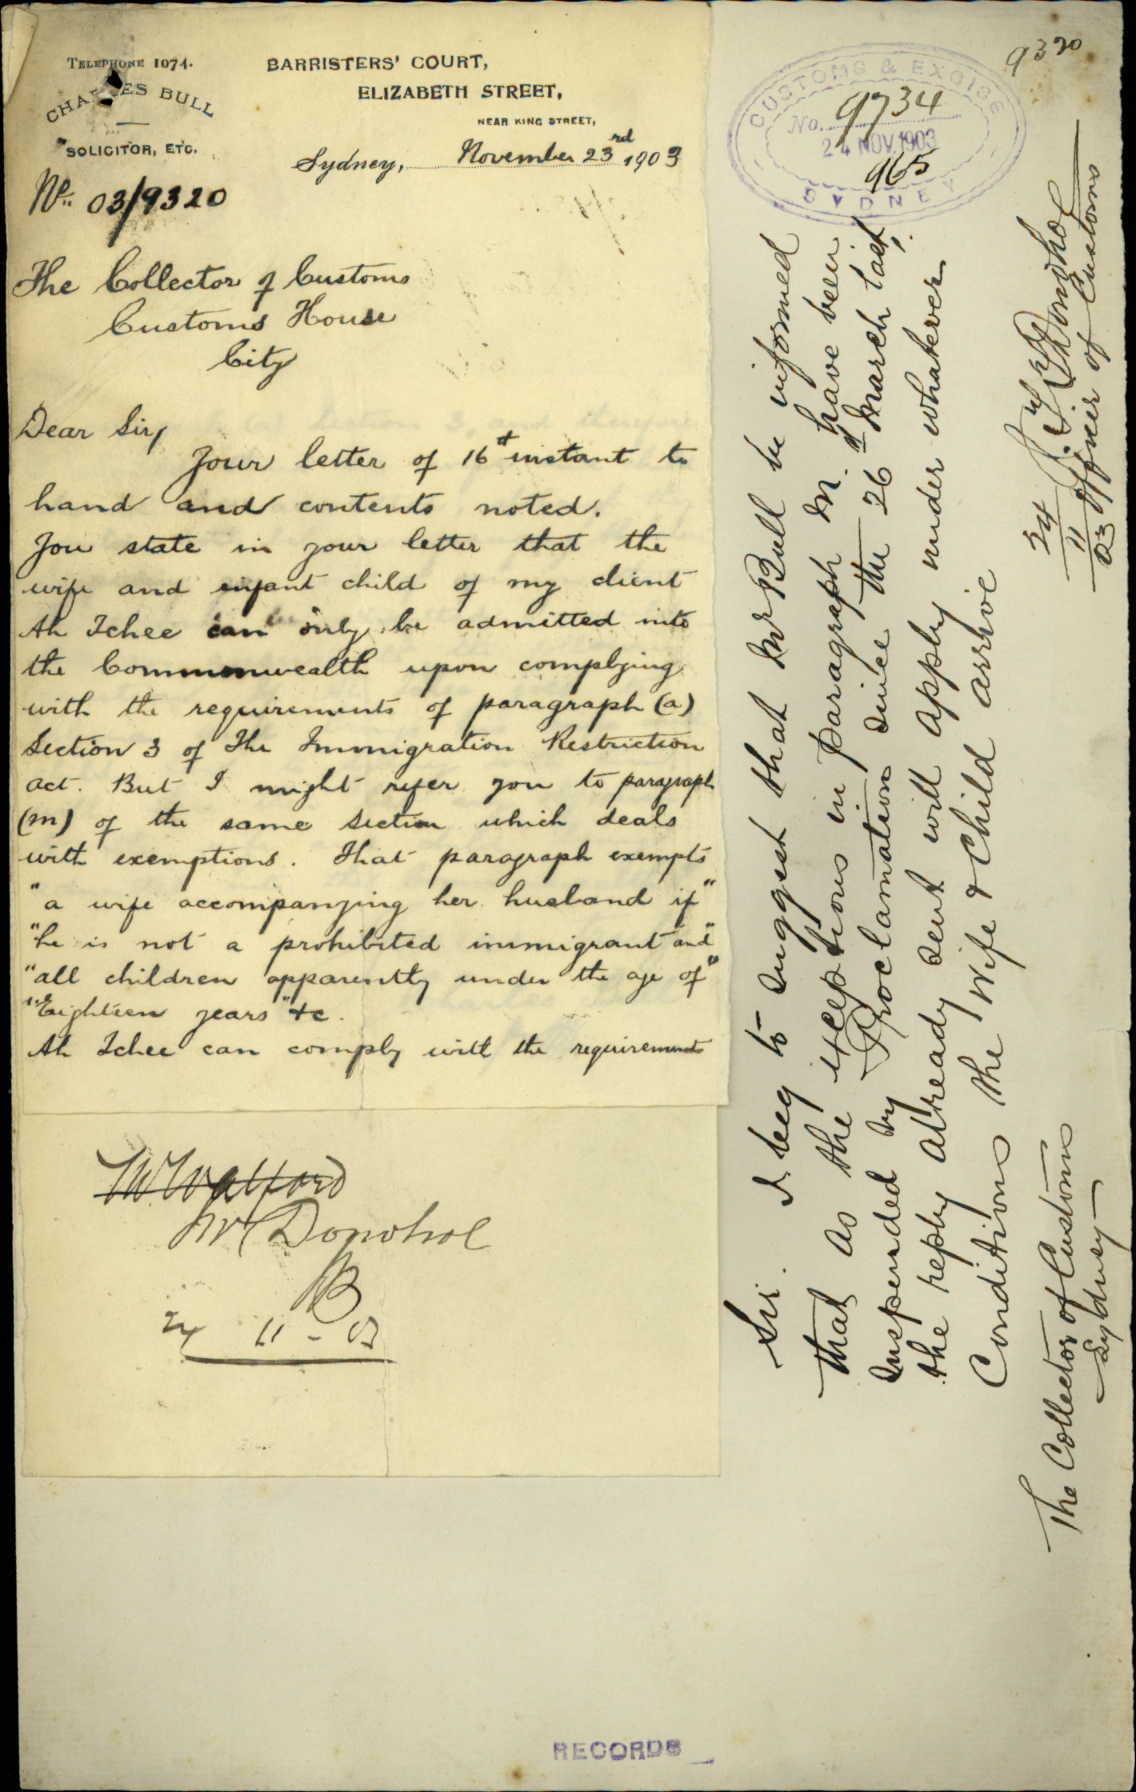 TELEPHONE 1074.
CHARLES BULL
SOLICITOR, ETC.
BARRISTERS' COURT,
ELIZABETH STREET,
NEAR KING STREET,
Sydney, November 23rd 1903
No. 03/9320
The Collector of Customs
Customs House
City
Dear Sir,
Your letter of 16th instant to
hand and contents noted.
You state in your letter that the
wife and infant child of my client
Ah Ichee can "only" be admitted into
the Commonwealth upon complying
with the requirements of paragraph (a)
Section 3 of The Immigration Restriction
Act. But I might refer you to paragraph
(m) of the same Section which deals
with exemptions. That paragraph exempts
"a wife accompanying her husband if"
"he is not a prohibited immigrant and"
"all children apparently under the age of"
"Eighteen years" &c.
Ah Ichee can comply with the requirements
Mr Donohoe
24 11-03
9320
CUSTOMS & EXCISE
No. 9734
24 NOV. 1903
965
SYDNEY
Sir. I beg to suggest that Mr Bull be informed
that as the exceptions in paragraph M. have been
suspended by Proclamation since the 26th March last,
the reply already sent will apply under whatever
Conditions the Wife & Child arrive
24/11/03
Donohoe
Officer of Customs
The Collector of Customs
Sydney
RECORDS